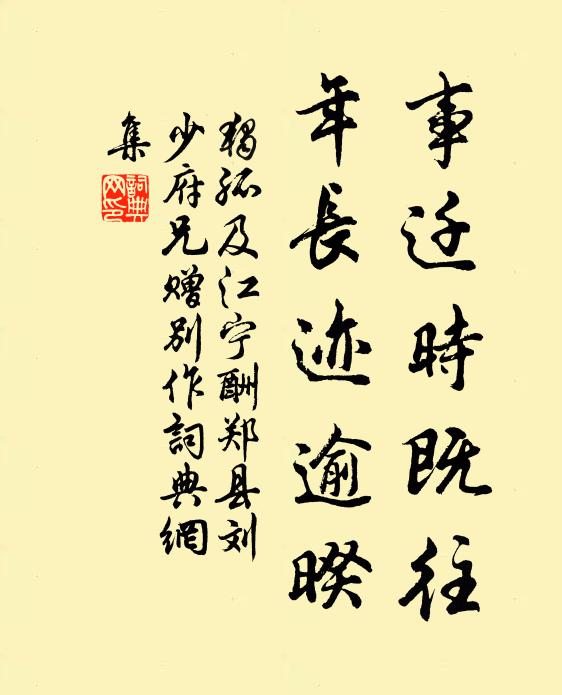 事迁時既往
年長迹逾暌
獨孤及江宁酬郑县刘
少府兄赠别作詞典網
集
詞典网印